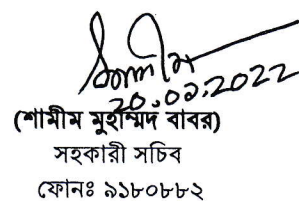 শামীম
20.01.2022
(শামীম মুহাম্মদ বাবর)
সহকারী সচিব
ফোনঃ ৯১৮০৮৮২